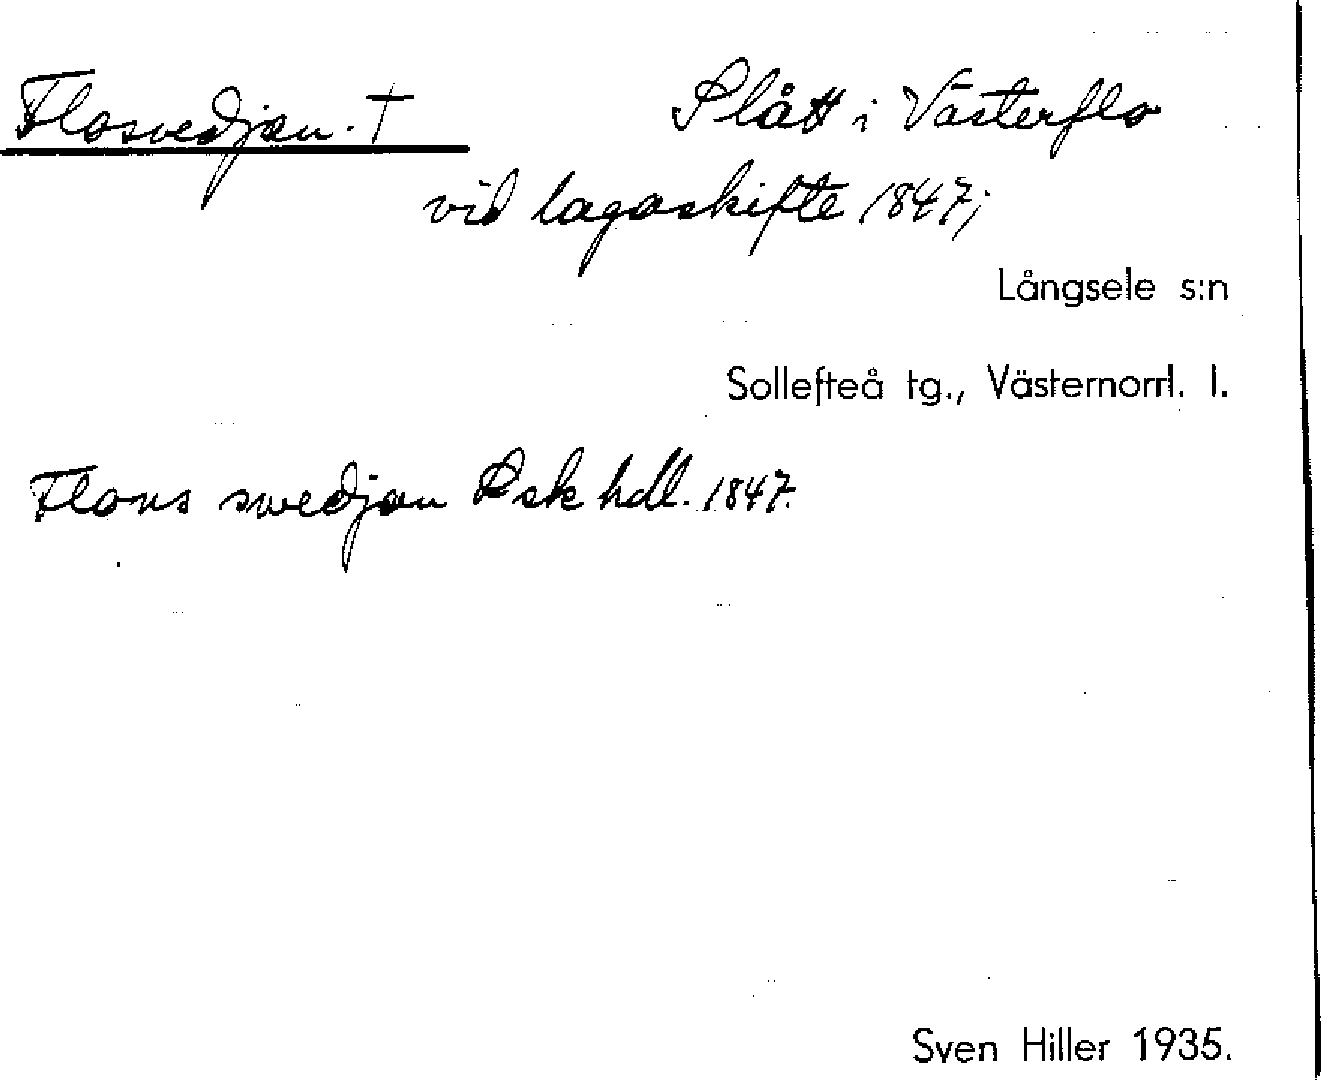 Flosvedjan. † Slått i Västerflo
vid lagaskifte 1847;
Långsele s:n
Sollefteå tg., Västernorrl. l.
Flons swedjan Lsk hdl. 1847.
Sven Hiller 1935.